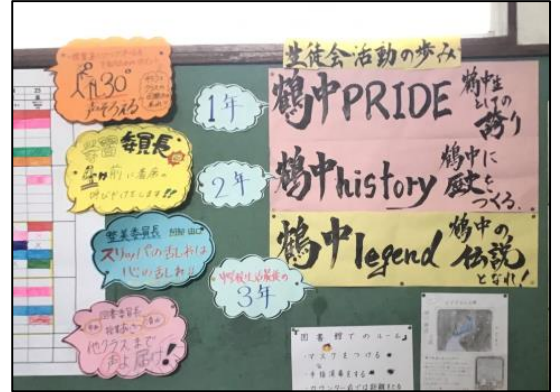 生徒会活動の歩み
1年
鶴中PRIDE
鶴中生
としての
誇り
2年
鶴中history
鶴中に
歴史を
つくる。
中学校生活最後の
3年
鶴中legend
鶴中の
伝説
となれ!
30°
声そろえる
学習委員長
前に着席の
呼びかけをします!!
整美委員長
スリッパの乱れは
心の乱れ!!
図書委員長
他クラスまで
届け!
図書館でのルール
・マスクをつける
・手指消毒をする
・カウンター前では距離をとる
25